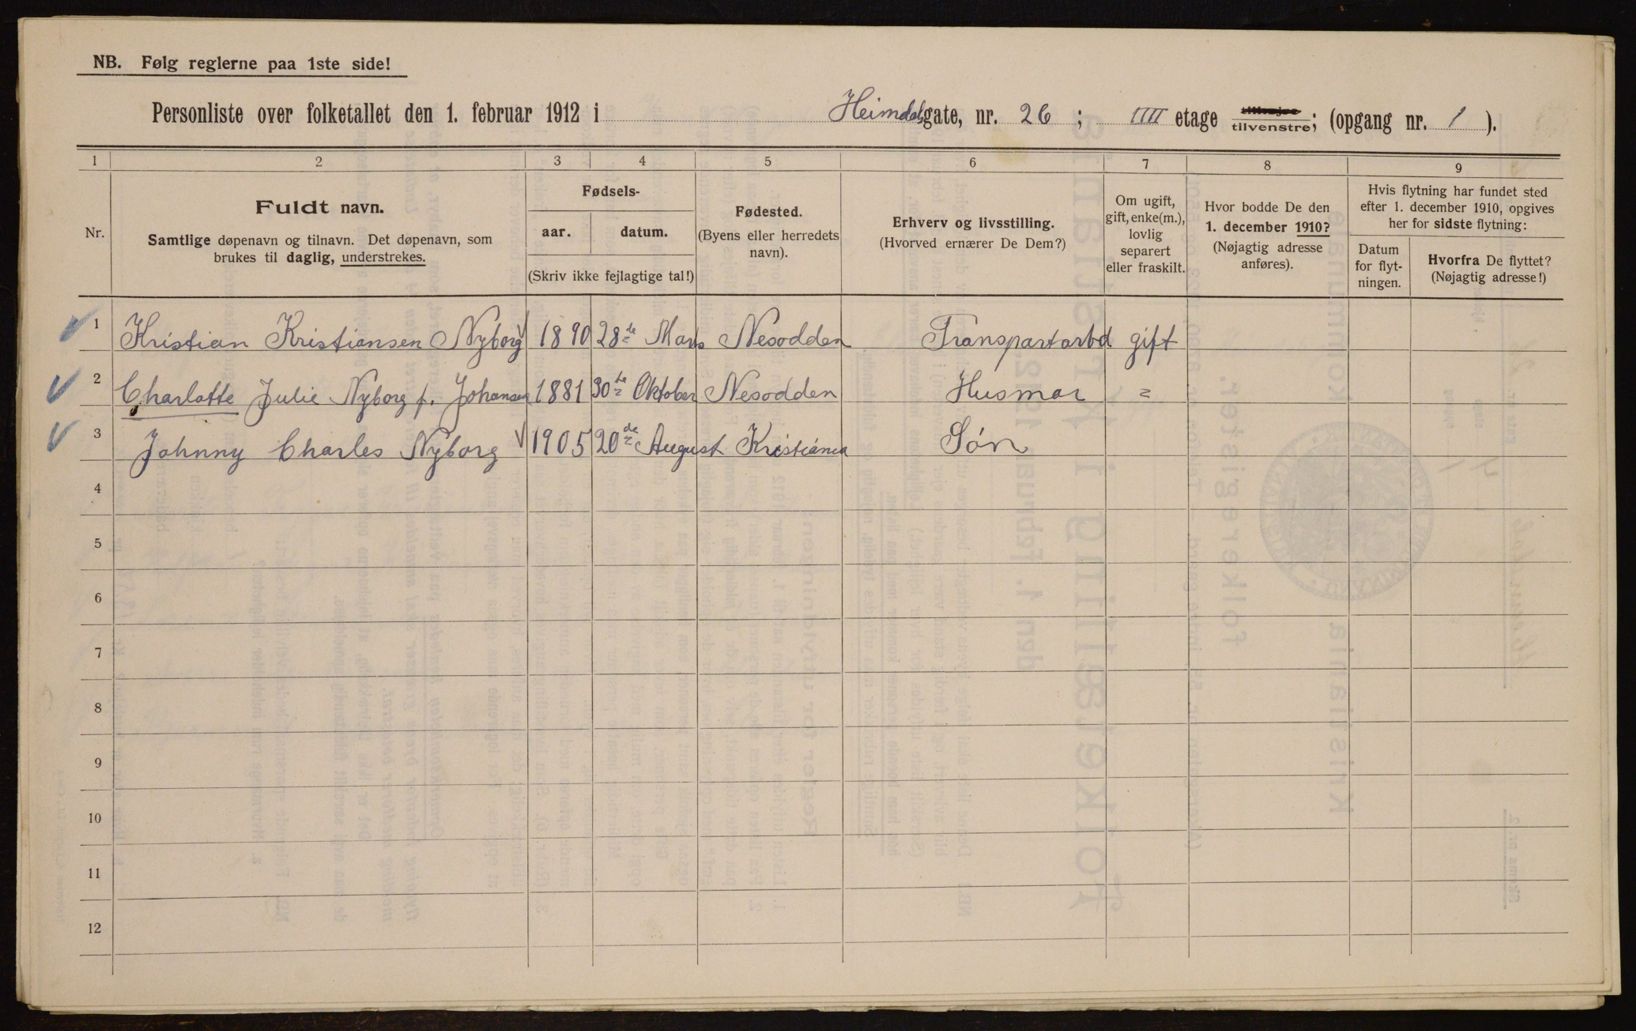 NB. Følg reglerne paa 1ste side!
Personliste over folketallet den 1. februar 1912 i Heimdalsgate, nr. 26 ; IIII etage tilvenstre; (opgang nr. 1 ).
1 2 3 4 5 6 7 8 9
Nr.
Fuldt navn.
Samtlige døpenavn og tilnavn. Det døpenavn, som
brukes til daglig, understrekes.
Fødsels-
aar. datum.
(Skriv ikke fejlagtige tal!)
Fødested.
(Byens eller herredets
navn).
Erhverv og livsstilling.
(Hvorved ernærer De Dem?)
Om ugift,
gift, enke(m.),
lovlig
separert
eller fraskilt.
Hvor bodde De den
1. december 1910?
(Nøjagtig adresse
anføres).
Hvis flytning har fundet sted
efter 1. december 1910, opgives
her for sidste flytning:
Datum
for flyt-
ningen.
Hvorfra De flyttet?
(Nøjagtig adresse!)
1 Kristian Kristiansen Nyborg 1890 28de Mars Nesodden Transportarbd gift
2 Charlotte Julie Nyborg f. Johansen 1881 30te Oktober Nesodden Husmor "
3 Johnny Charles Nyborg 1905 20de August Kristiania Søn
4
5
6
7
8
9
10
11
12